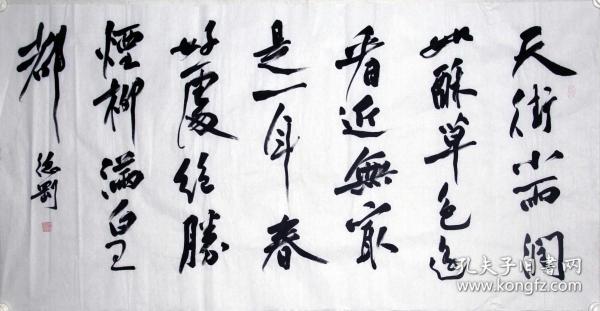 天街小雨潤
如酥草色遙
看近無最
是一年春
好處絕勝
煙柳滿皇
都
孔夫子旧书网
www.kongfz.com